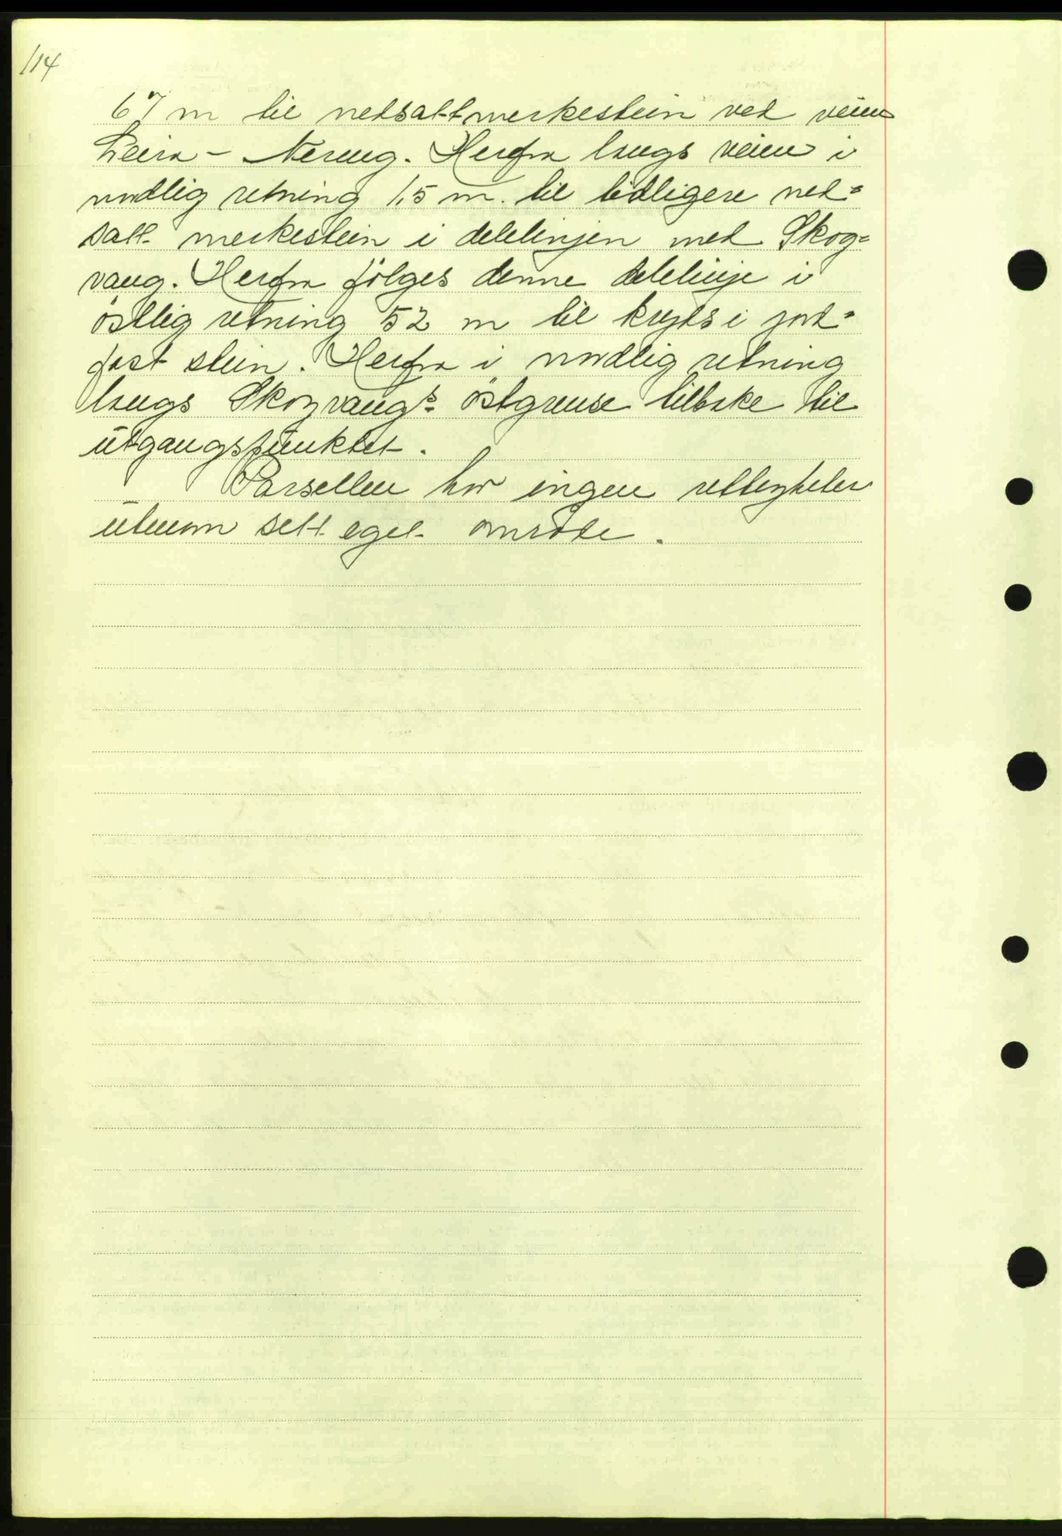 114
67 m til nedsatt merkestein ved veien
Leira - Nereng. Herfra langs veien i
nordlig retning 1,5 m. til tidligere ned=
satt merkestein i delelinjen med Skog=
vang. Herfra følges denne delelinje i
östlig retning 52 m til kryds i jord=
fast stein. Herfra i nordlig retning
langs Skogvangs östgrense tilbake til
utgangspunktet.
Parsellen har ingen rettigheter
utenom sett eget område.